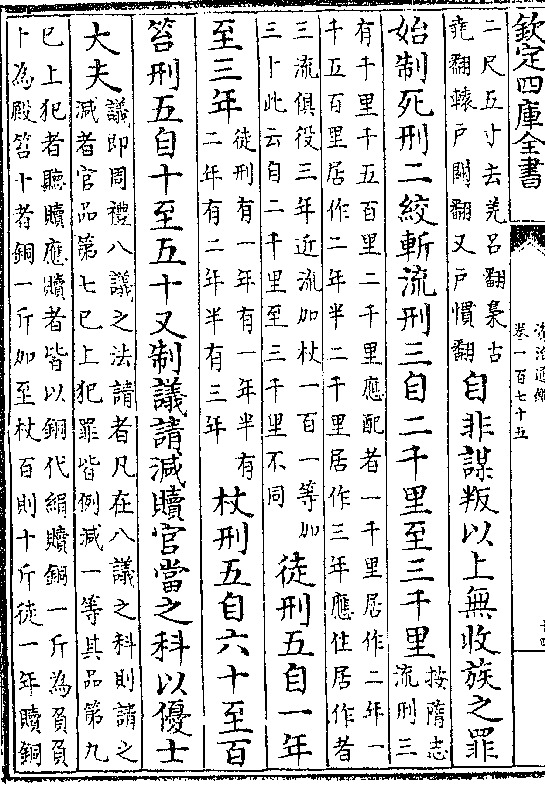 欽定四庫全書
資治通鑑
卷一百七十五
十四
二尺五寸去羌呂翻梟古
堯翻轘戶關翻又戶慣翻
自非謀叛以上無收族之罪
始制死刑二絞斬流刑三自二千里至三千里
按隋志
流刑三
有千里千五百里二千里應配者一千里居作二年一
千五百里居作二年半二千里居作三年應住居作者
三流俱役三年近流加杖一百一等加
三十此云自二千里至三千里不同
徒刑五自一年
至三年
徒刑有一年有一年半有
二年有二年半有三年
杖刑五自六十至百
笞刑五自十至五十又制議請減贖官當之科以優士
大夫
議即周禮八議之法請者凡在八議之科則請之
減者官品第七已上犯罪皆例減一等其品第九
已上犯者聽贖應贖者皆以銅代絹贖銅一斤為負負
十為殿笞十者銅一斤加至杖百則十斤徒一年贖銅